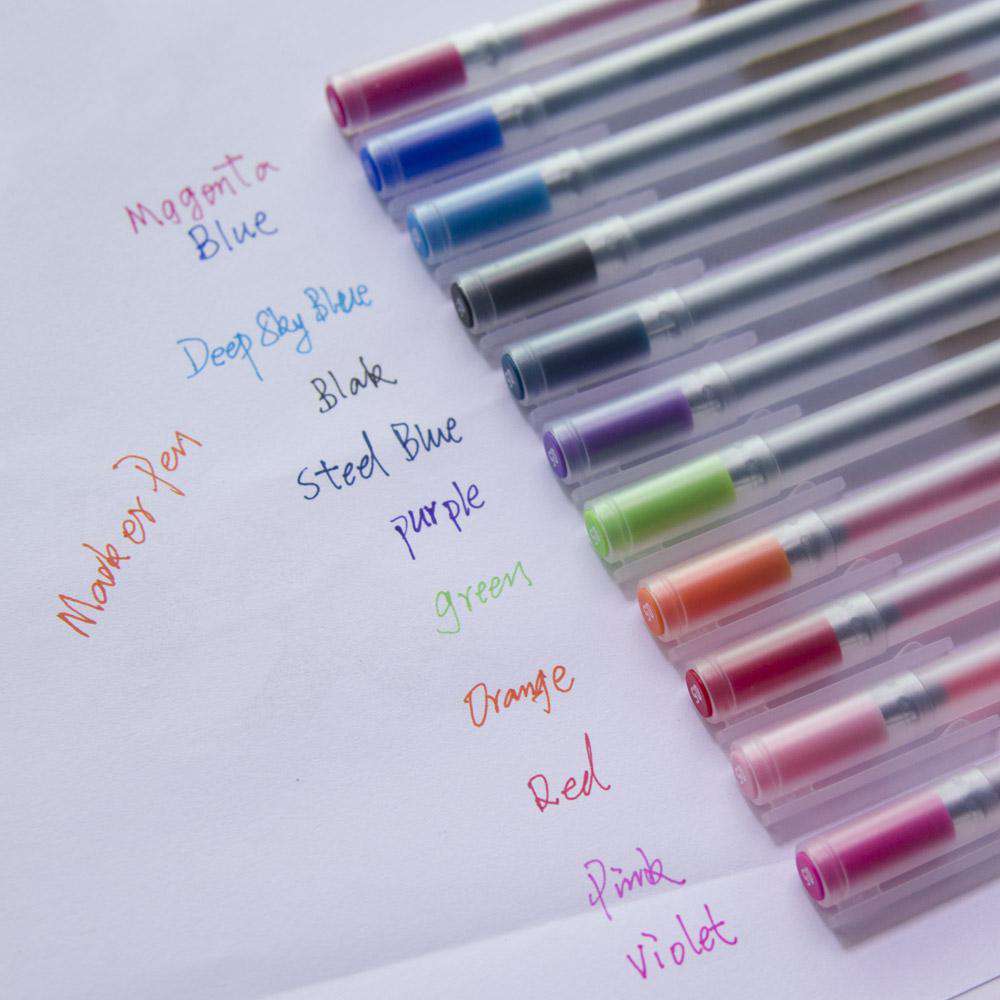 Magonta
Blue
Deep Sky Blue
Blak
Steel Blue
purple
Marker Pen
green
Orange
Red
Pink
Violet